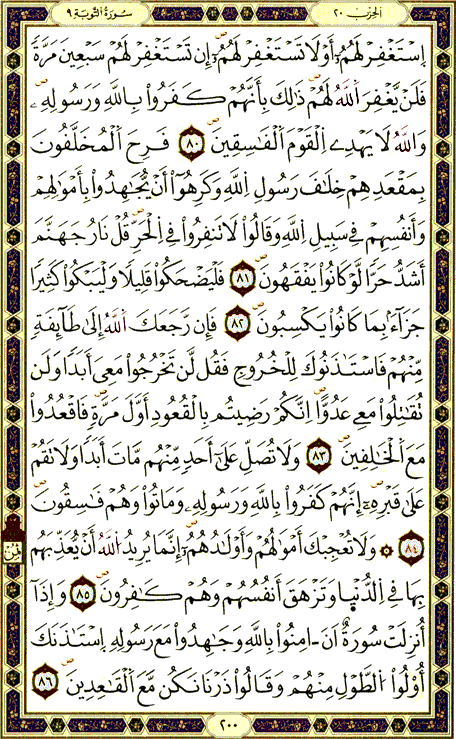 سُورَةُ التَّوْبَةِ ٩ الحِزْب ٢٠
اِسْتَغْفِرْ لَهُمُۥٓ أَوْ لَا تَسْتَغْفِرْ لَهُمُۥٓ إِن تَسْتَغْفِرْ لَهُمْ سَبْعِينَ مَرَّةً
فَلَنْ يَّغْفِرَ اَللَّهُ لَهُمْ ذَٰلِكَ بِأَنَّهُمْ كَفَرُواْ بِاللَّهِ وَرَسُولِهِۦ
وَاللَّهُ لَا يَهْدِے اِلْقَوْمَ اَلْفَٰسِقِينَ ٨٠ فَرِحَ اَلْمُخَلَّفُونَ
بِمَقْعَدِهِمْ خِلَٰفَ رَسُولِ اِللَّهِ وَكَرِهُوٓاْ أَنْ يُّجَٰهِدُواْ بِأَمْوَٰلِهِمْ
وَأَنفُسِهِمْ فِے سَبِيلِ اِللَّهِ وَقَالُواْ لَا تَنفِرُواْ فِے اِلْحَرِّ قُلْ نَارُ جَهَنَّمَ
أَشَدُّ حَرّاً لَّوْ كَانُواْ يَفْقَهُونَ ٨١ فَلْيَضْحَكُواْ قَلِيلاً وَلْيَبْكُواْ كَثِيراً
جَزَآءَۢ بِمَا كَانُواْ يَكْسِبُونَ ٨٢ فَإِن رَّجَعَكَ اَللَّهُ إِلَىٰ طَآئِفَةٍ
مِّنْهُمْ فَاسْتَـْٔذَنُوكَ لِلْخُرُوجِ فَقُل لَّن تَخْرُجُواْ مَعِيَ أَبَداً وَلَن
تُقَٰتِلُواْ مَعِے عَدُوّاً اِنَّكُمْ رَضِيتُم بِالْقُعُودِ أَوَّلَ مَرَّةٍ فَاقْعُدُواْ
مَعَ اَلْخَٰلِفِينَ ٨٣ وَلَا تُصَلِّ عَلَىٰٓ أَحَدٍ مِّنْهُم مَّاتَ أَبَداً وَلَا تَقُمْ
عَلَىٰ قَبْرِهِۦٓ إِنَّهُمْ كَفَرُواْ بِاللَّهِ وَرَسُولِهِۦ وَمَاتُواْ وَهُمْ فَٰسِقُونَ
٨٤ وَلَا تُعْجِبْكَ أَمْوَٰلُهُمْ وَأَوْلَٰدُهُمُۥٓ إِنَّمَا يُرِيدُ اُللَّهُ أَنْ يُّعَذِّبَهُم
بِهَا فِے اِلدُّنْيَا وَتَزْهَقَ أَنفُسُهُمْ وَهُمْ كَٰفِرُونَ ٨٥ وَإِذَآ
أُنزِلَتْ سُورَةٌ اَنَ اٰمِنُواْ بِاللَّهِ وَجَٰهِدُواْ مَعَ رَسُولِهِ اِسْتَـْٔذَنَكَ
أُوْلُواْ اُلطَّوْلِ مِنْهُمْ وَقَالُواْ ذَرْنَا نَكُن مَّعَ اَلْقَٰعِدِينَ ٨٦
ثمن
٢٠٠